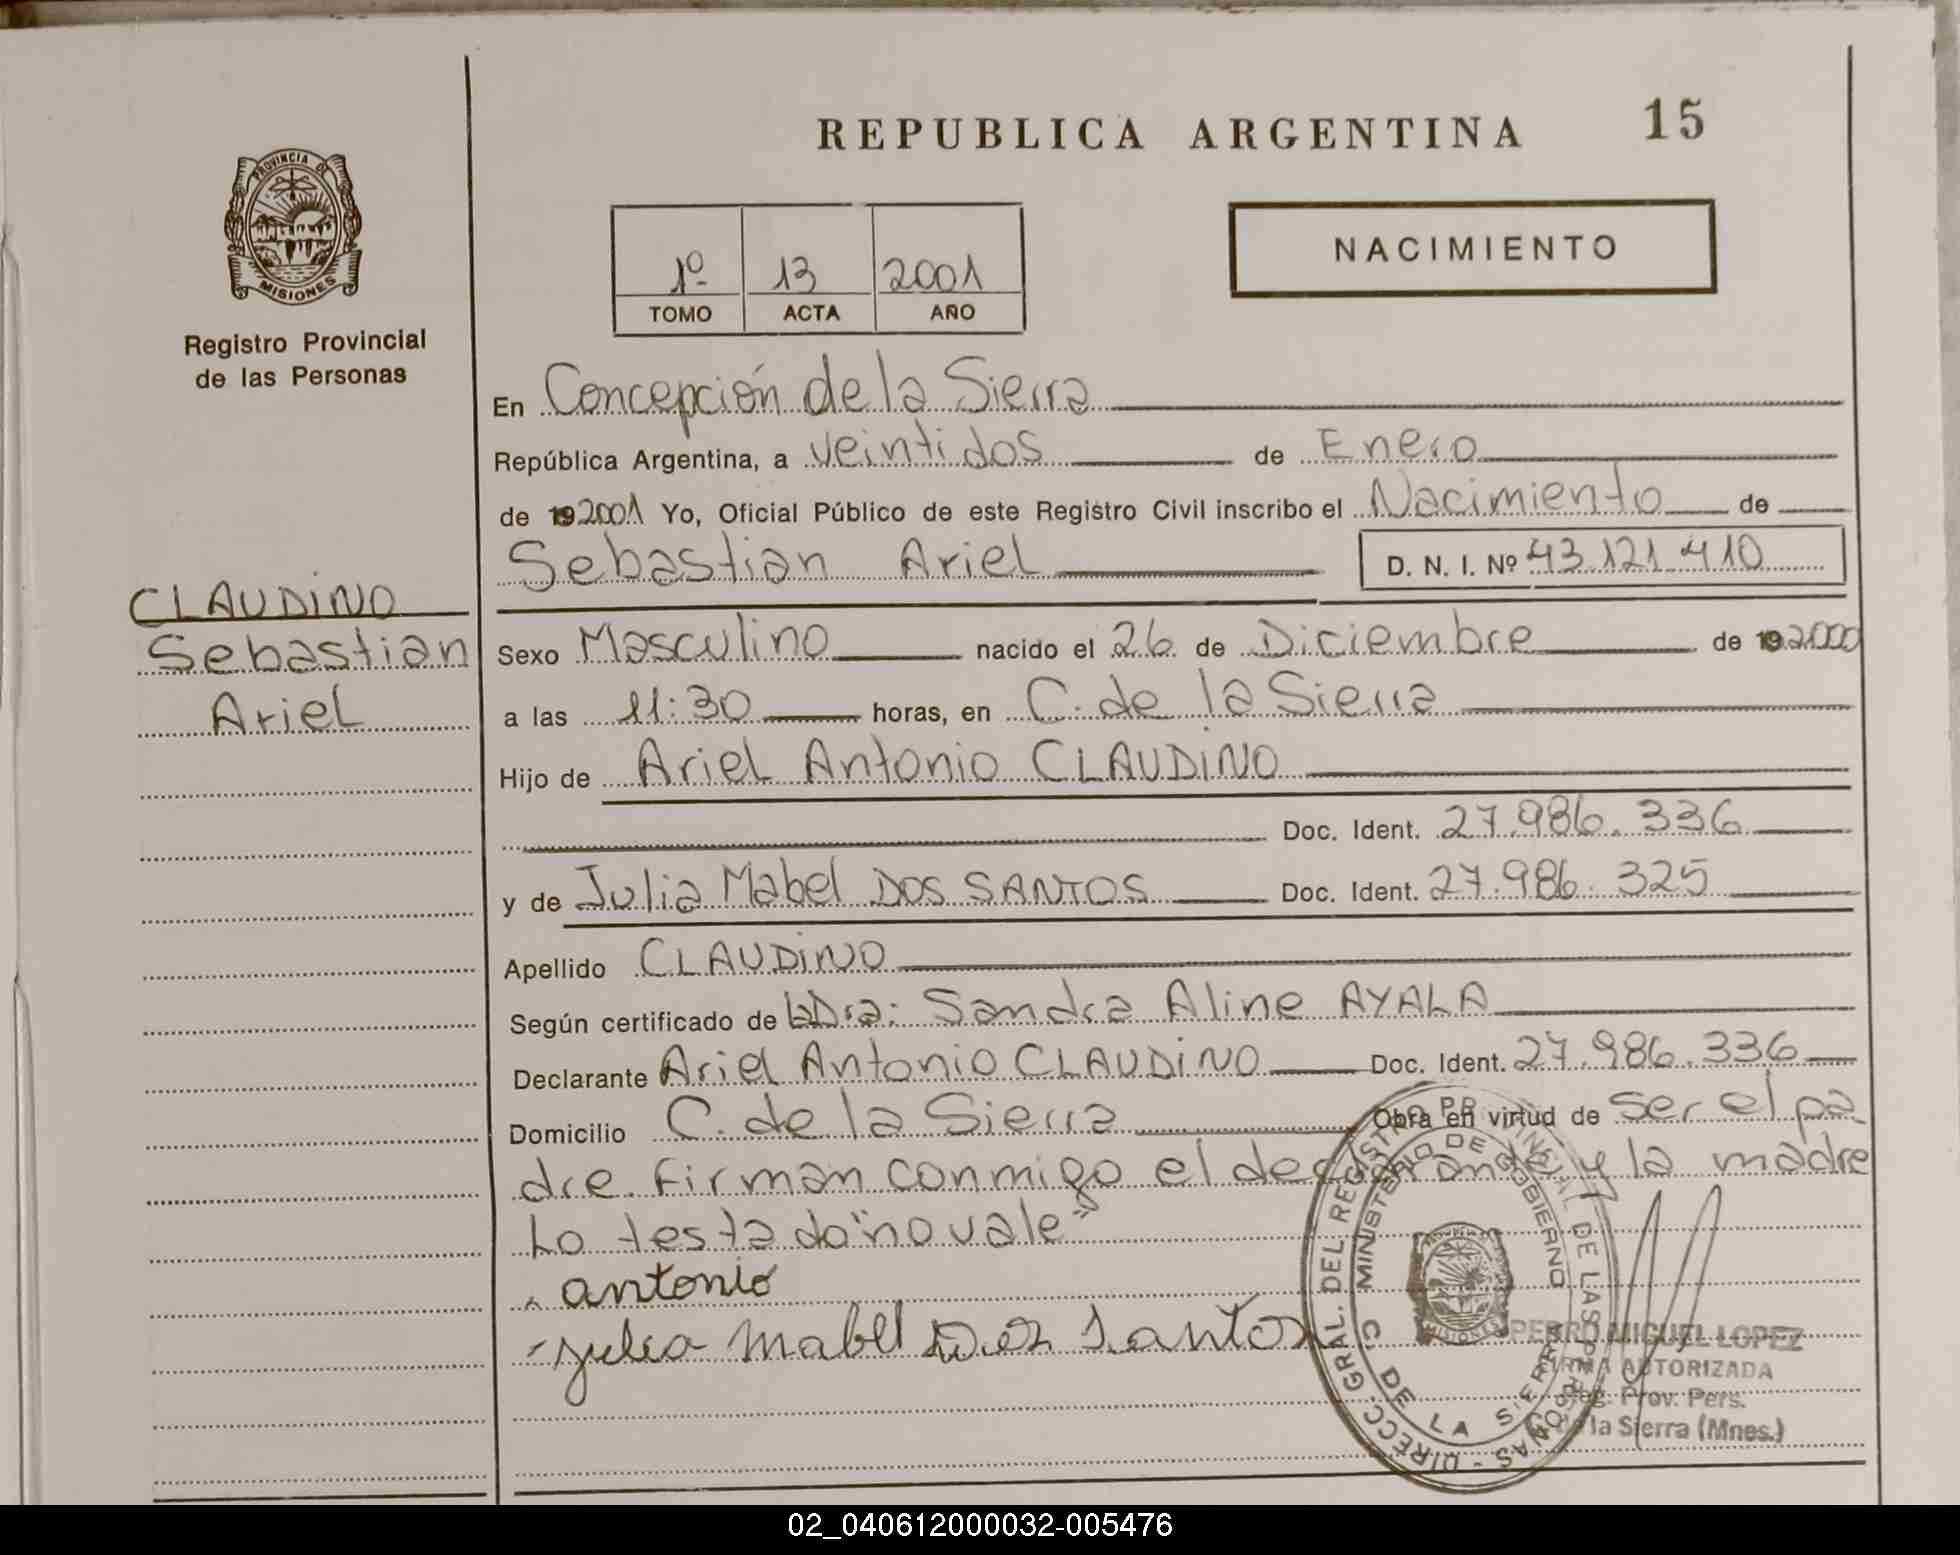 REPUBLICA ARGENTINA 15
PROVINCIA DE MISIONES
Registro Provincial
de las Personas
NACIMIENTO
1º 13 2001
TOMO ACTA AÑO
En Concepción de la Sierra
República Argentina, a veintidos de Enero
de 192001 Yo, Oficial Público de este Registro Civil inscribo el Nacimiento de
Sebastian Ariel D. N. I. Nº 43.121.410
CLAUDINO
Sebastian
Ariel
Sexo Masculino nacido el 26 de Diciembre de 192000
a las 11:30 horas, en C. de la Sierra
Hijo de Ariel Antonio CLAUDINO
Doc. Ident. 27.986.336
y de Julia Mabel DOS SANTOS Doc. Ident. 27.986.325
Apellido CLAUDINO
Según certificado de la Dra: Sandra Aline AYALA
Declarante Ariel Antonio CLAUDINO Doc. Ident. 27.986.336
Domicilio C. de la Sierra Obra en virtud de ser el pa
dre. Firman conmigo el declarante y la madre
Lo testado "no vale"
antonio
Julia Mabel Dos Santos
DIRECC. GRAL. DEL REGISTRO PROVINCIAL DE LAS PERSONAS
MINISTERIO DE GOBIERNO
C. DE LA SIERRA
MISIONES
PEDRO MIGUEL LOPEZ
FIRMA AUTORIZADA
Reg. Prov. Pers.
C. de la Sierra (Mnes.)
02_040612000032-005476